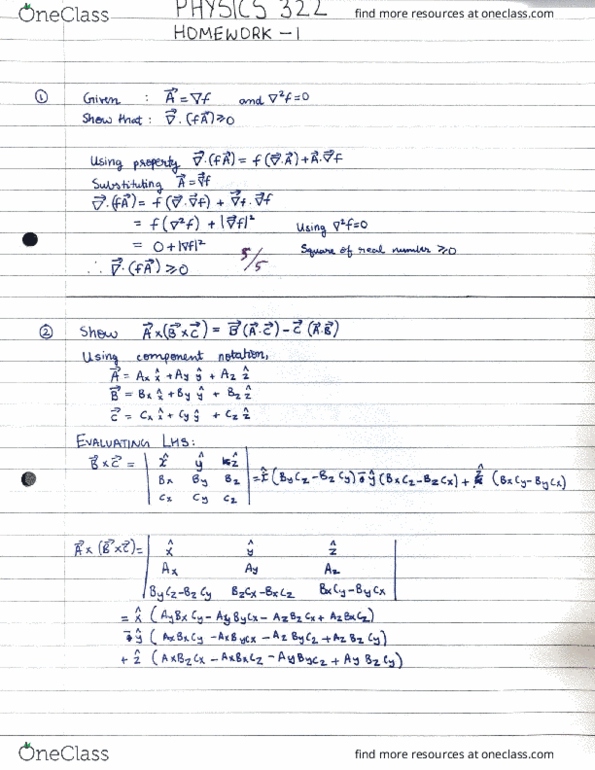 OneClass
find more resources at oneclass.com
PHYSICS 322
HOMEWORK -1
① Given : A⃗ = ∇f and ∇²f=0
Show that : ∇⃗.(fA⃗) ≥0
Using property ∇⃗.(fA⃗) = f(∇⃗.A⃗)+A⃗.∇⃗f
Substituting A⃗=∇⃗f
∇⃗.(fA⃗) = f(∇⃗.∇⃗f) + ∇⃗f.∇⃗f
= f(∇²f) + |∇⃗f|² Using ∇²f=0
= 0+|∇f|² Square of real number ≥0
∴ ∇⃗.(fA⃗) ≥0 5/5
② Show A⃗×(B⃗×C⃗) = B⃗(A⃗.C⃗)-C⃗(A⃗.B⃗)
Using component notation,
A⃗ = Ax x̂ + Ay ŷ + Az ẑ
B⃗ = Bx x̂ + By ŷ + Bz ẑ
C⃗ = Cx x̂ + Cy ŷ + Cz ẑ
EVALUATING LHS:
B⃗×C⃗ = | x̂ ŷ ẑ |
| Bx By Bz | = x̂(ByCz-BzCy) - ŷ(BxCz-BzCx) + ẑ(BxCy-ByCx)
| Cx Cy Cz |
A⃗×(B⃗×C⃗)= | x̂ ŷ ẑ |
| Ax Ay Az |
| ByCz-BzCy BzCx-BxCz BxCy-ByCx |
= x̂ (AyBxCy-AyByCx-AzBzCx+AzBxCz)
- ŷ (AxBxCy-AxByCx-AzByCz+AzBzCy)
+ ẑ (AxBzCx-AxBxCz-AyByCz+AyBzCy)
OneClass
find more resources at oneclass.com